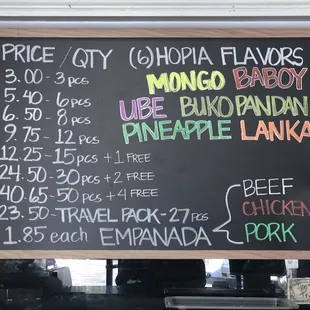 PRICE / QTY (6) HOPIA FLAVORS
3.00 - 3 PCS MONGO BABOY
5.40 - 6 PCS
6.50 - 8 PCS UBE BUKO PANDAN
9.75 - 12 PCS PINEAPPLE LANKA
12.25 - 15 PCS + 1 FREE
24.50 - 30 PCS + 2 FREE
40.65 - 50 PCS + 4 FREE BEEF
23.50 - TRAVEL PACK - 27 PCS CHICKEN
1.85 each EMPANADA PORK